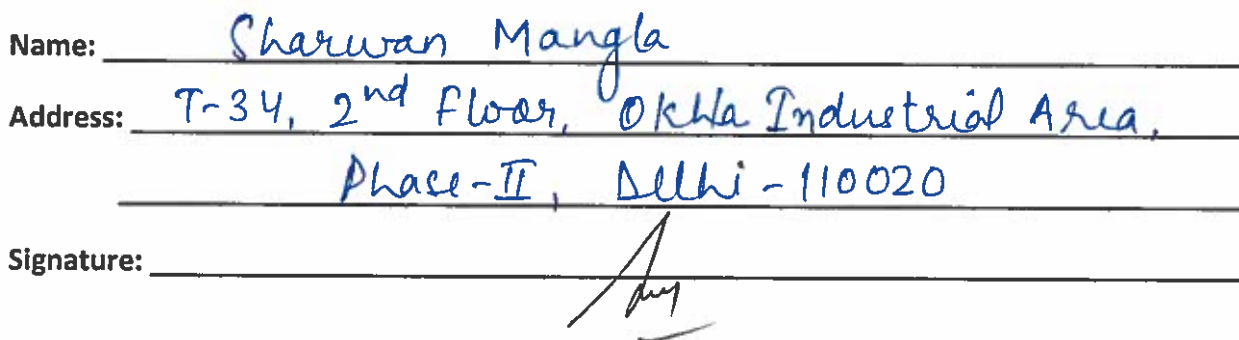 Name: Sharwan Mangla
Address: T-34, 2nd Floor, Okhla Industrial Area,
Phase-II, Delhi - 110020
Signature: